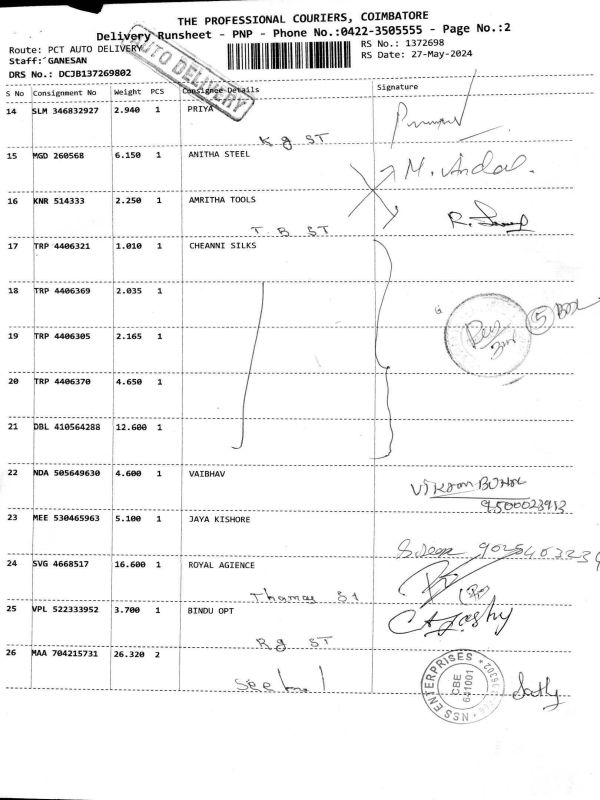 THE PROFESSIONAL COURIERS, COIMBATORE
Delivery Runsheet - PNP - Phone No.:0422-3505555 - Page No.:2
Route: PCT AUTO DELIVERY
RS No.: 1372698
Staff: GANESAN
RS Date: 27-May-2024
DRS No.: DCJB137269802
AUTO DELIVERY
S No Consignment No Weight PCS Consignee Details Signature
14 SLM 346832927 2.940 1 PRIYA
K g ST
15 MGD 260568 6.150 1 ANITHA STEEL
M. Andal.
16 KNR 514333 2.250 1 AMRITHA TOOLS
T. B ST
17 TRP 4406321 1.010 1 CHEANNI SILKS
18 TRP 4406369 2.035 1
5 BOX
19 TRP 4406305 2.165 1
20 TRP 4406370 4.650 1
21 DBL 410564288 12.600 1
22 NDA 505649630 4.600 1 VAIBHAV
23 MEE 530465963 5.100 1 JAYA KISHORE
24 SVG 4668517 16.600 1 ROYAL AGIENCE
Thomas St
25 VPL 522333952 3.700 1 BINDU OPT
Rg ST
26 MAA 704215731 26.320 2
NSS ENTERPRISES
CBE
641001